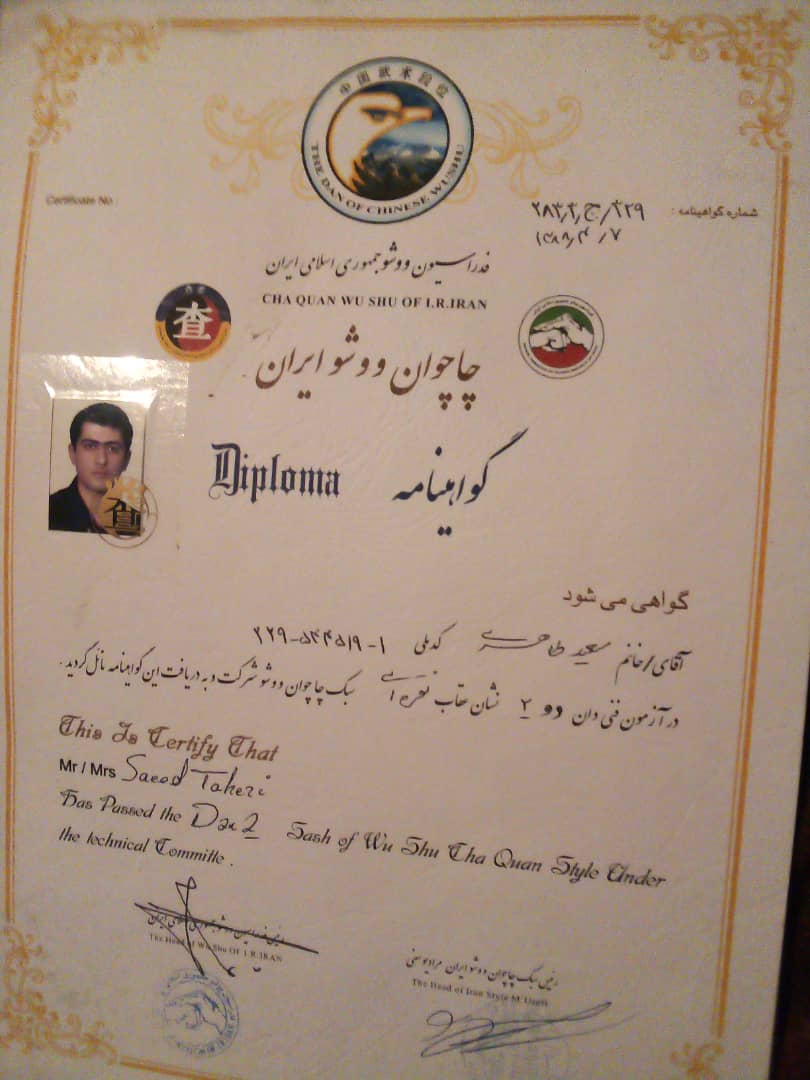 中国武术段位
THE DAN OF CHINESE WUSHU
Certificate No
شماره گواهینامه : ۲۸۳,۴/ج/۴۲۹
۱۳۸۸/۴/۷
فدراسیون ووشو جمهوری اسلامی ایران
CHA QUAN WU SHU OF I.R.IRAN
查
چاچوان ووشو ایران
Diploma گواهینامه
گواهی می شود
آقای/خانم سعید طاهری کدملی
در آزمون فنی دان دو ۲ نشان عقاب نقره ای سبک چاچوان ووشو شرکت و به دریافت این گواهینامه نائل گردید .
This Is Certify That
Mr / Mrs Saeed Taheri
Has Passed the Dan 2 Sash of Wu Shu Cha Quan Style Under
the technical Committe .
رئیس فدراسیون ووشو جمهوری اسلامی ایران
The Head of Wu Shu OF I.R.IRAN
رئیس سبک چاچوان ووشو ایران مراد یوسفی
The Head of Iran Style M.Usefi